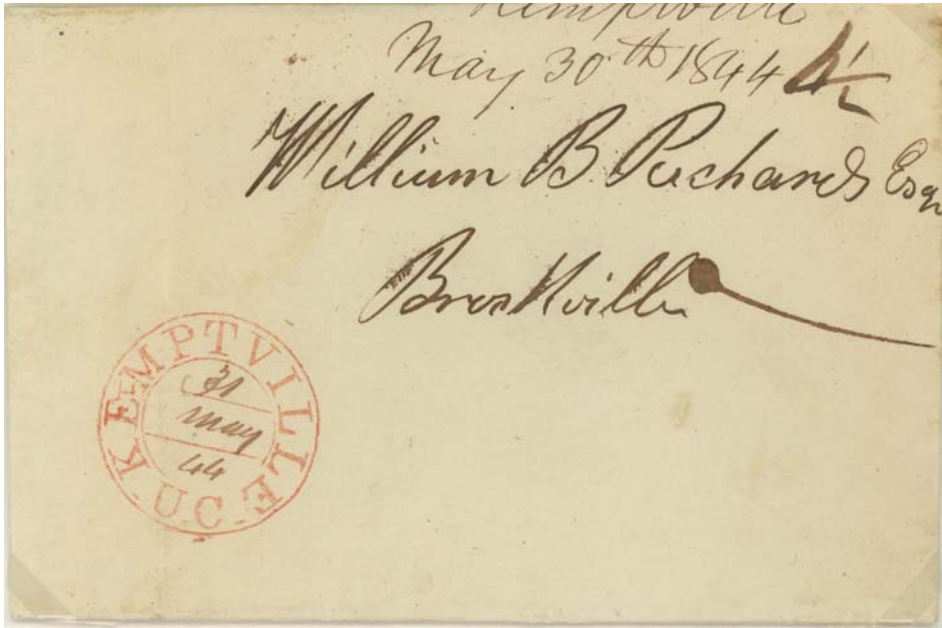 Kemptville
May 30th 1844 4½
William B. Richards Esqr
Brockville
KEMPTVILLE
31
May
44
U.C.